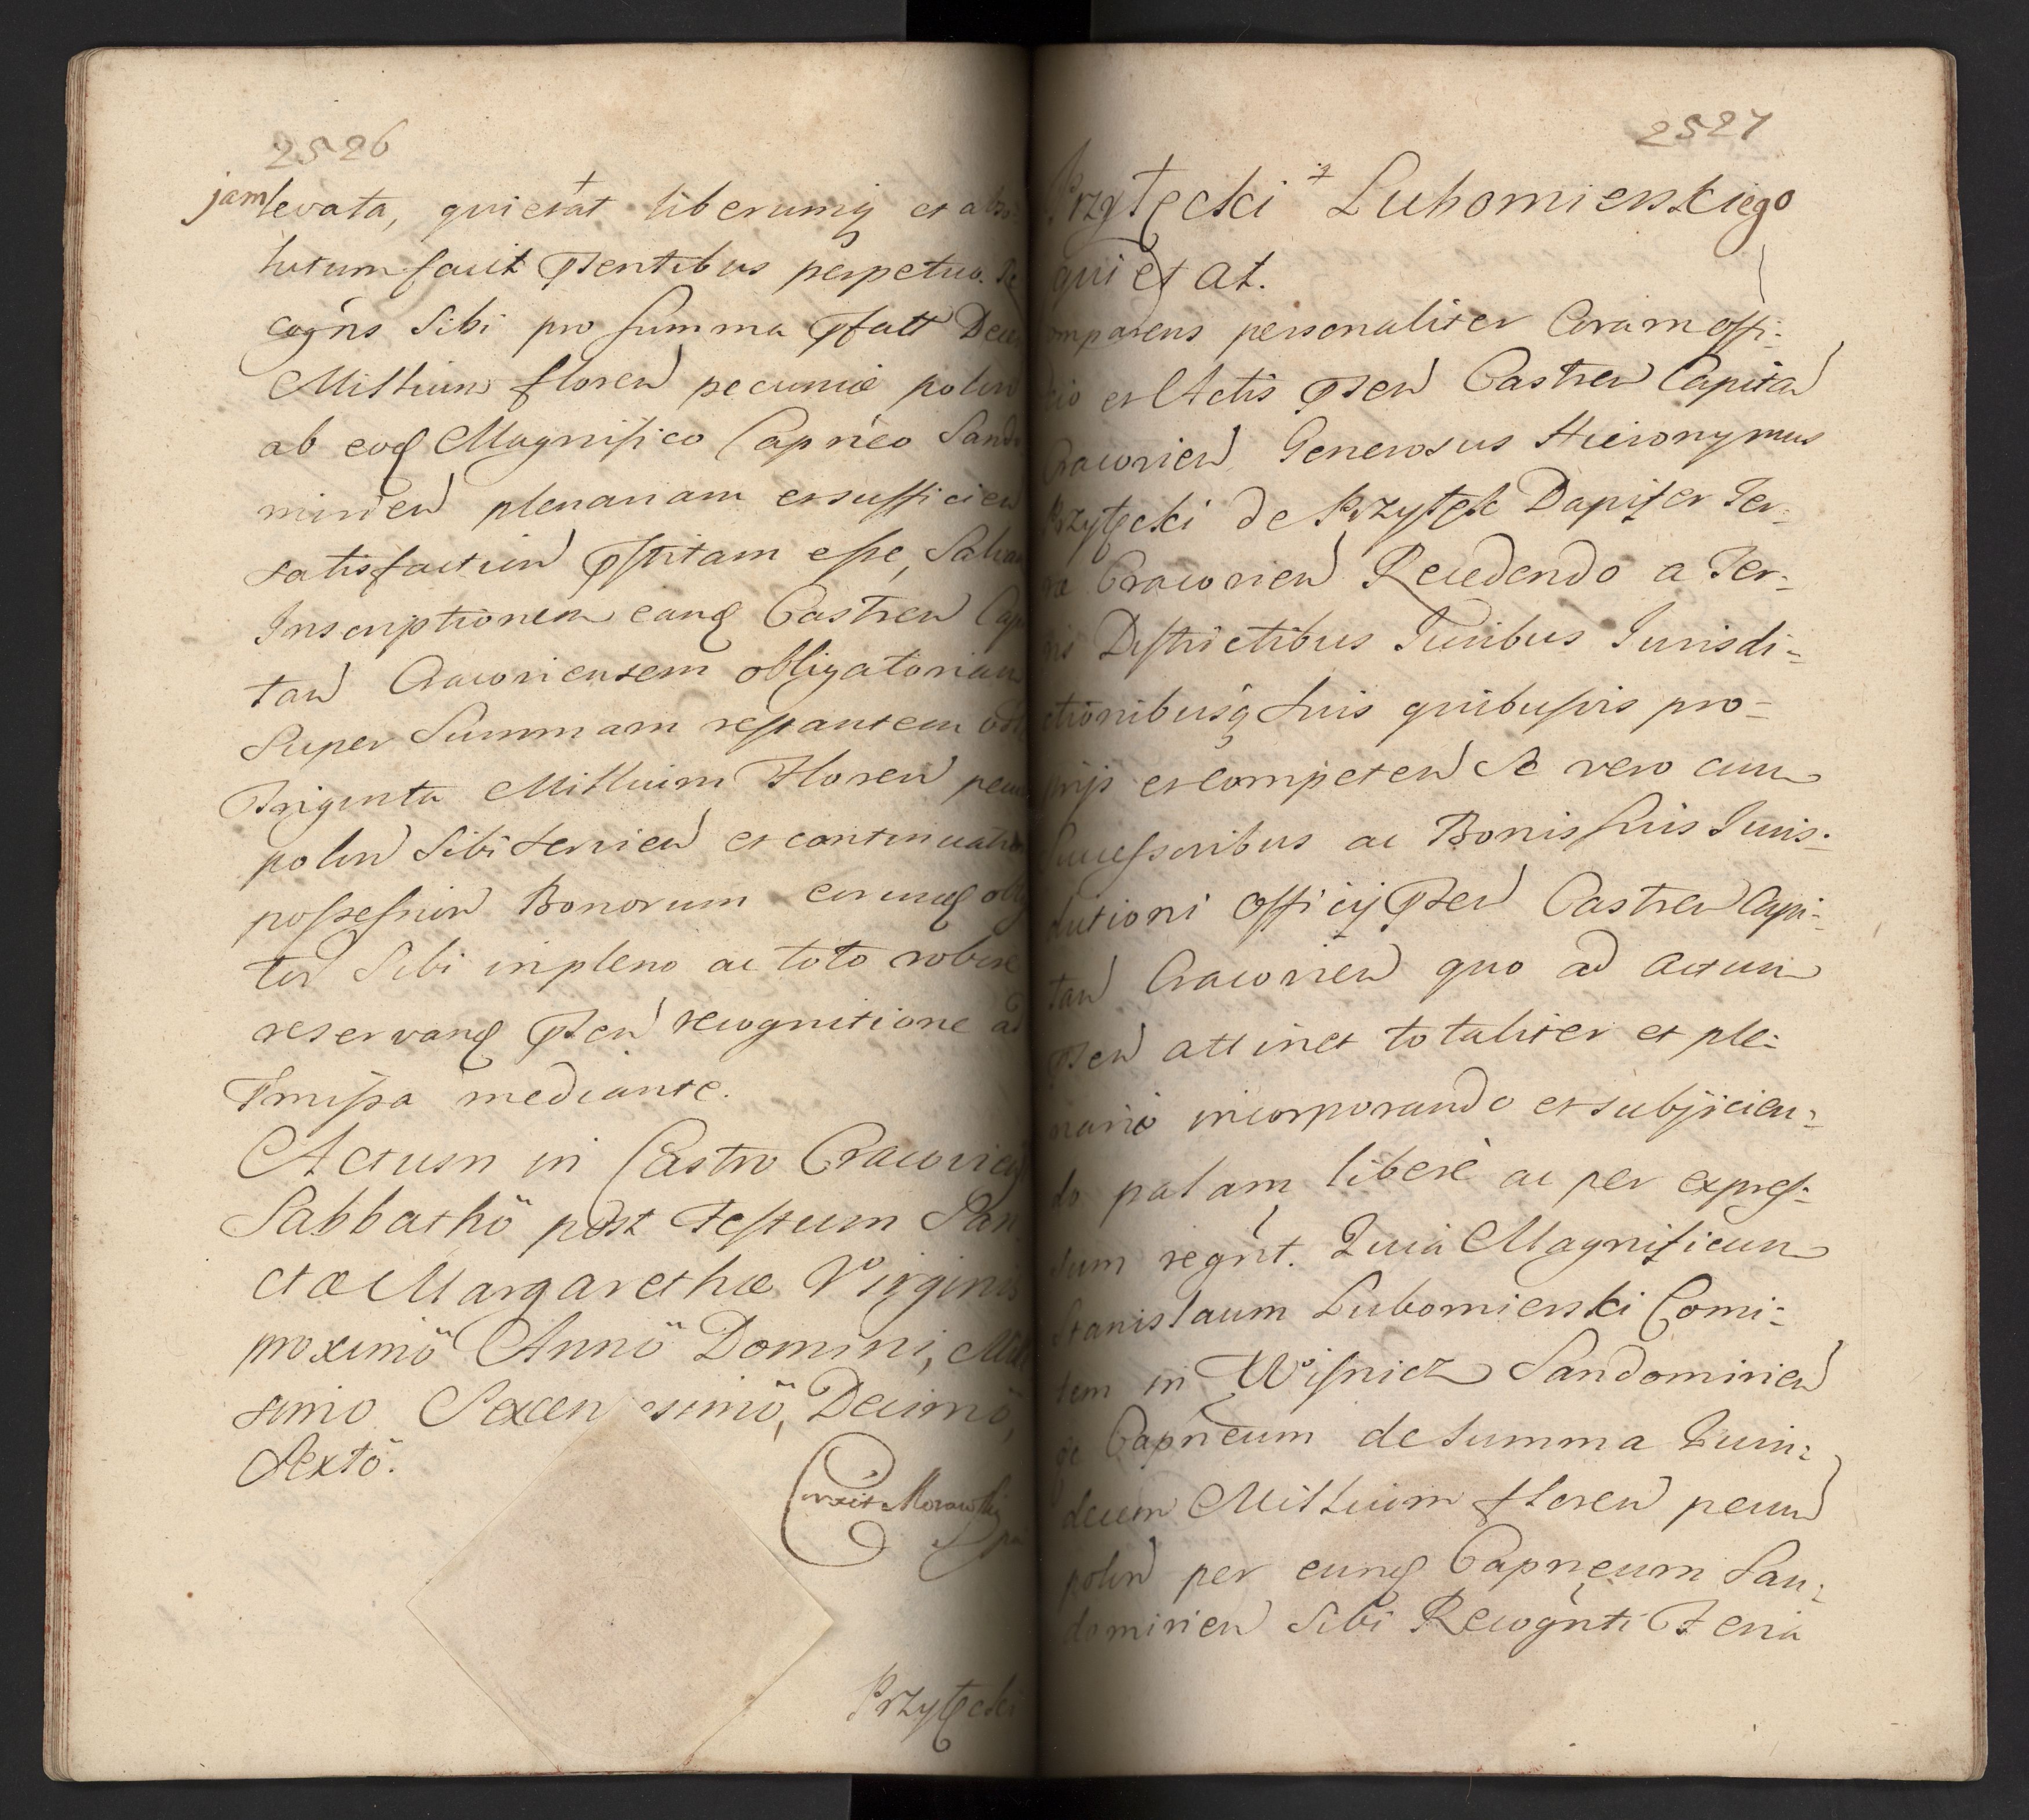 2526
jam levata, quietat liberumq et abso-
lutum facit pntibus perpetuo. Re
cogns Sibi pro summa pfatt Decem
Millium floren pecuniæ polon
ab eod Magnifico Capneo Sando
mirien plenariam et sufficien
satisfaction pstitam esse, Salvam
Inscriptionem eand Castren Capi
tan Cracoviensem obligatoriam
Super Summam restantem
Triginta Millium Floren pecun
polon Sibi servien et continuation
possession Bonorum eorund obliga
tor Sibi in pleno ac toto robore
reservand pnsen recognitione ad
pmissa mediante.
Actum in Castro Cracovien
Sabbathö post Festum San
ctæ Margarethæ Virginis
proximö Annö Domini, Mille
simo Sexcen esimö, Decimö,
Sextö.
Correxit Morawski
Przyłęcki
2527
Przyłęcki z Lubomierskiego
quietat.
omparens personaliter Coram offi-
cio et Actis pnsen Castren Capitan
Cracovien Generosus Hieronymus
Przyłęcki de Przyłęk Dapifer Ter-
ræ Cracovien Recedendo a Ter-
ris Districtibus Iuribus Iurisdi-
ctionibusq Suis quibusvis pro-
prijs et competen Se vero cum
Successoribus ac Bonis suis Iuris-
dictioni officij pnsen Castren Capi-
tan Cracovien quo ad actum
pnsen attinet totaliter et ple-
nariè incorporando et subijcien-
do palam liberè ac per expres-
sum regnt. Quia Magnificum
Stanislaum Lubomierski Comi-
tem in Wisnicz Sandomirien
Capneum de summa Quin-
decim Millium floren pecun
polon per eund Capneum San-
domirien Sibi Recognti Feria